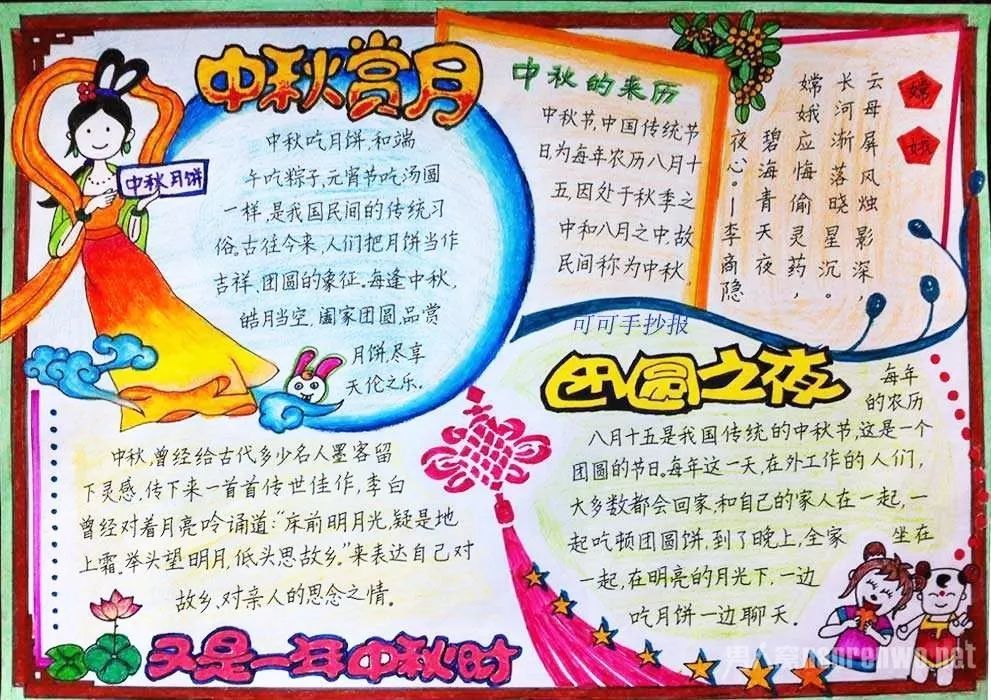 中秋赏月
中秋月饼
中秋吃月饼,和端
午吃粽子,元宵节吃汤圆
一样,是我国民间的传统习
俗。古往今来,人们把月饼当作
吉祥、团圆的象征。每逢中秋,
皓月当空,阖家团圆,品赏
月饼,尽享
天伦之乐。
中秋的来历
中秋节,中国传统节
日为每年农历八月十
五,因处于秋季之
中和八月之中,故
民间称为中秋。
嫦
娥
云母屏风烛影深，
长河渐落晓星沉。
嫦娥应悔偷灵药，
碧海青天夜
夜心。—李商隐
可可手抄报
团圆之夜
每年
的农历
八月十五是我国传统的中秋节,这是一个
团圆的节日。每年这一天,在外工作的人们,
大多数都会回家,和自己的家人在一起,一
起吃顿团圆饼,到了晚上,全家 坐在
一起,在明亮的月光下,一边
吃月饼一边聊天。
中秋,曾经给古代多少名人墨客留
下灵感,传下来一首首传世佳作,李白
曾经对着月亮吟诵道:“床前明月光,疑是地
上霜。举头望明月,低头思故乡。”来表达自己对
故乡、对亲人的思念之情。
又是一年中秋时
男人窝nanrenwo.net